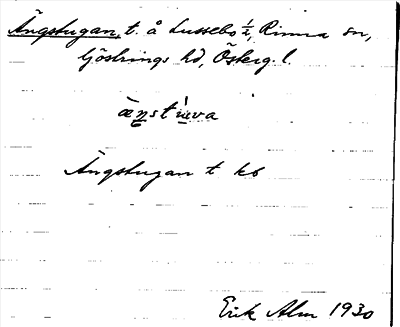 Ängstugan, t. å Lussebo ½, Rinna sn,
Göstrings hd, Österg. l.
Ängstugan t kb
Erik Alm 1930